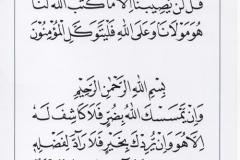 قُلْ لَنْ يُصِيبَنَا إِلَّا مَا كَتَبَ اللهُ لَنَا
هُوَ مَوْلَانَا وَعَلَى اللهِ فَلْيَتَوَكَّلِ الْمُؤْمِنُونَ
بِسْمِ اللهِ الرَّحْمٰنِ الرَّحِيْمِ
وَإِنْ يَمْسَسْكَ اللهُ بِضُرٍّ فَلَا كَاشِفَ لَهُ
إِلَّا هُوَ وَإِنْ يُرِدْكَ بِخَيْرٍ فَلَا رَادَّ لِفَضْلِهِ